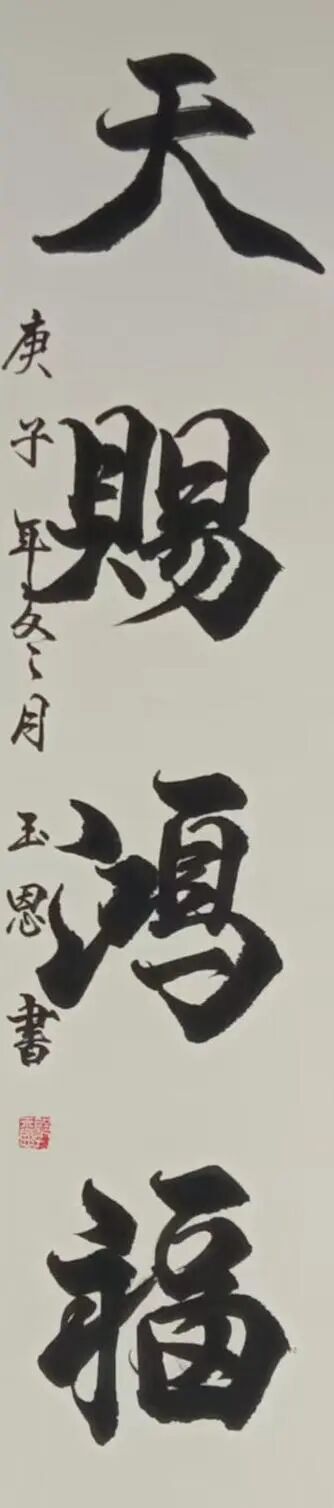 天賜鴻福
庚子年冬月玉恩書